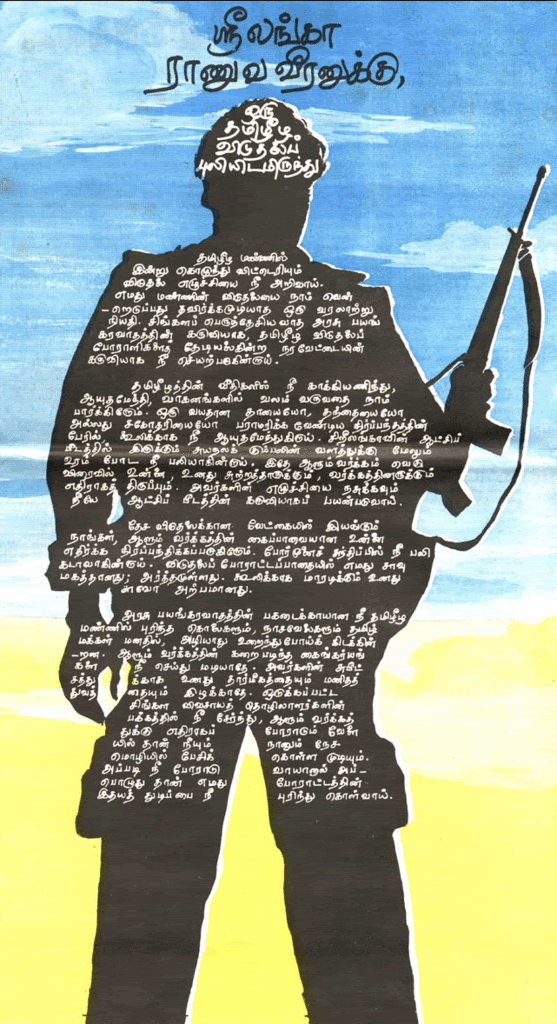 ஸ்ரீலங்கா
ராணுவ வீரனுக்கு,
ஒரு
தமிழீழ
விடுதலைப்
புலியிடமிருந்து
தமிழீழ மண்ணில்
இன்று கொழுந்து விட்டெரியும்
விடுதலை எழுச்சியை நீ அறிவாய்.
எமது மண்ணின் விடுதலையை நாம் வென்
-றெடுப்பது தவிர்க்கமுடியாத ஒரு வரலாற்று
நியதி. சிங்களப் பெருந்தேசியவாத அரசு பயங்
கரவாதத்தின் கருவியாக, தமிழீழ விடுதலைப்
போராளிகளைத் தேடியலைகின்ற நரவேட்டையின்
கருவியாக நீ செயற்படுகின்றாய்.
தமிழீழத்தின் வீதிகளில் நீ காக்கியணிந்து,
ஆயுதமேந்தி, வாகனங்களில் வலம் வருவதை நாம்
பார்க்கிறோம். ஒரு வயதான தாயையோ, தந்தையையோ
அல்லது சகோதரியையோ பராமரிக்க வேண்டிய நிர்ப்பந்தத்தின்
பேரில் கூலிக்காக நீ ஆயுதமேந்துகிறாய். சிறீலங்காவின் ஆட்சிப்
பீடத்தில் இருக்கும் சுயநலக் கும்பலின் வளத்துக்கு மேலும்
உரம் போட நீ பலியாகின்றாய். இதே ஆளும்வர்க்கம் வெகு
விரைவில் உன்னை, உனது சுற்றத்தாருக்கும், வர்க்கத்தினருக்கும்
எதிராகத் திருப்பும். அவர்களின் எழுச்சியை நசுக்கவும்
நீயே ஆட்சிப் பீடத்தின் கருவியாகப் பயன்படுவாய்.
தேச விடுதலைக்கான வேட்கையில் இயங்கும்
நாங்கள், ஆளும் வர்க்கத்தின் கைப்பாவையான உன்னை
எதிர்க்க நிர்ப்பந்திக்கப்படுகிறோம். போர்முனைச் சந்திப்பில் நீ பலி
கடாவாகின்றாய். விடுதலைப் போராட்டப்பாதையில் எமது சாவு
மகத்தானது; அர்த்தமுள்ளது. கூலிக்காக மாரடிக்கும் உனது
சாவோ அற்பமானது.
அரசு பயங்கரவாதத்தின் பகடைக்காயான நீ தமிழீழ
மண்ணில் புரிந்த கொலைகளும், நாசவேலைகளும் தமிழ்
மக்கள் மனதில், அழியாது உறைந்துபோய்க் கிடக்கின்
-றன. ஆளும் வர்க்கத்தின் கறை படிந்த கைங்கர்யங்
களை நீ செய்து மடியாதே. அவர்களின் சுபீட்
சத்துக்காக உனது தார்மீகத்தையும் மனிதத்
துவத்தையும் இழக்காதே. ஒடுக்கப்பட்ட
சிங்கள விவசாயத் தொழிலாளர்களின்
பக்கத்தில் நீ சேர்ந்து, ஆளும் வர்க்கத்
துக்கு எதிராகப் போராடும் வேளை
யில் தான் நீயும் நானும் நேச
மொழியில் பேசிக் கொள்ள முடியும்.
அப்படி நீ போராடு வாயானால் அப்-
பொழுது தான் எமது போராட்டத்தின்
இதயத் துடிப்பை நீ புரிந்து கொள்வாய்.